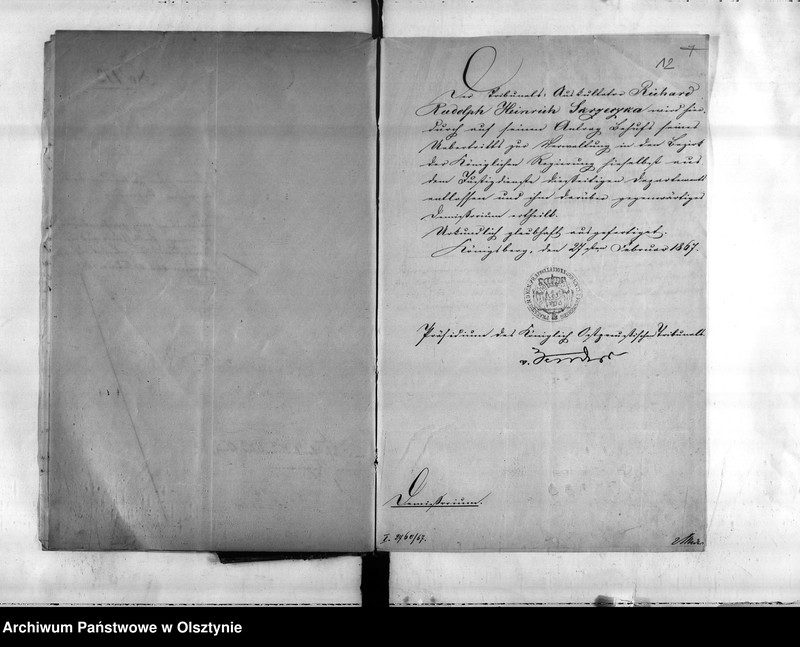 12
Der Tribunals-Auskultator Richard
Rudolph Heinrich Skrzeczka wird hier-
durch auf seinen Antrag Behufs seines
Uebertritts zur Verwaltung in den Bezirk
der Königlichen Regierung hieselbst aus
dem Justizdienste diesseitigen Departements
entlassen und ihm darüber gegenwärtiges
Demissorium ertheilt.
Urkundlich glaubhaft ausgefertiget.
Königsberg, den 27ten Februar 1867.
Präsidium des Königlich Ostpreußischen Tribunals
v.
Demissorium.
I. 2760/67.
Archiwum Państwowe w Olsztynie